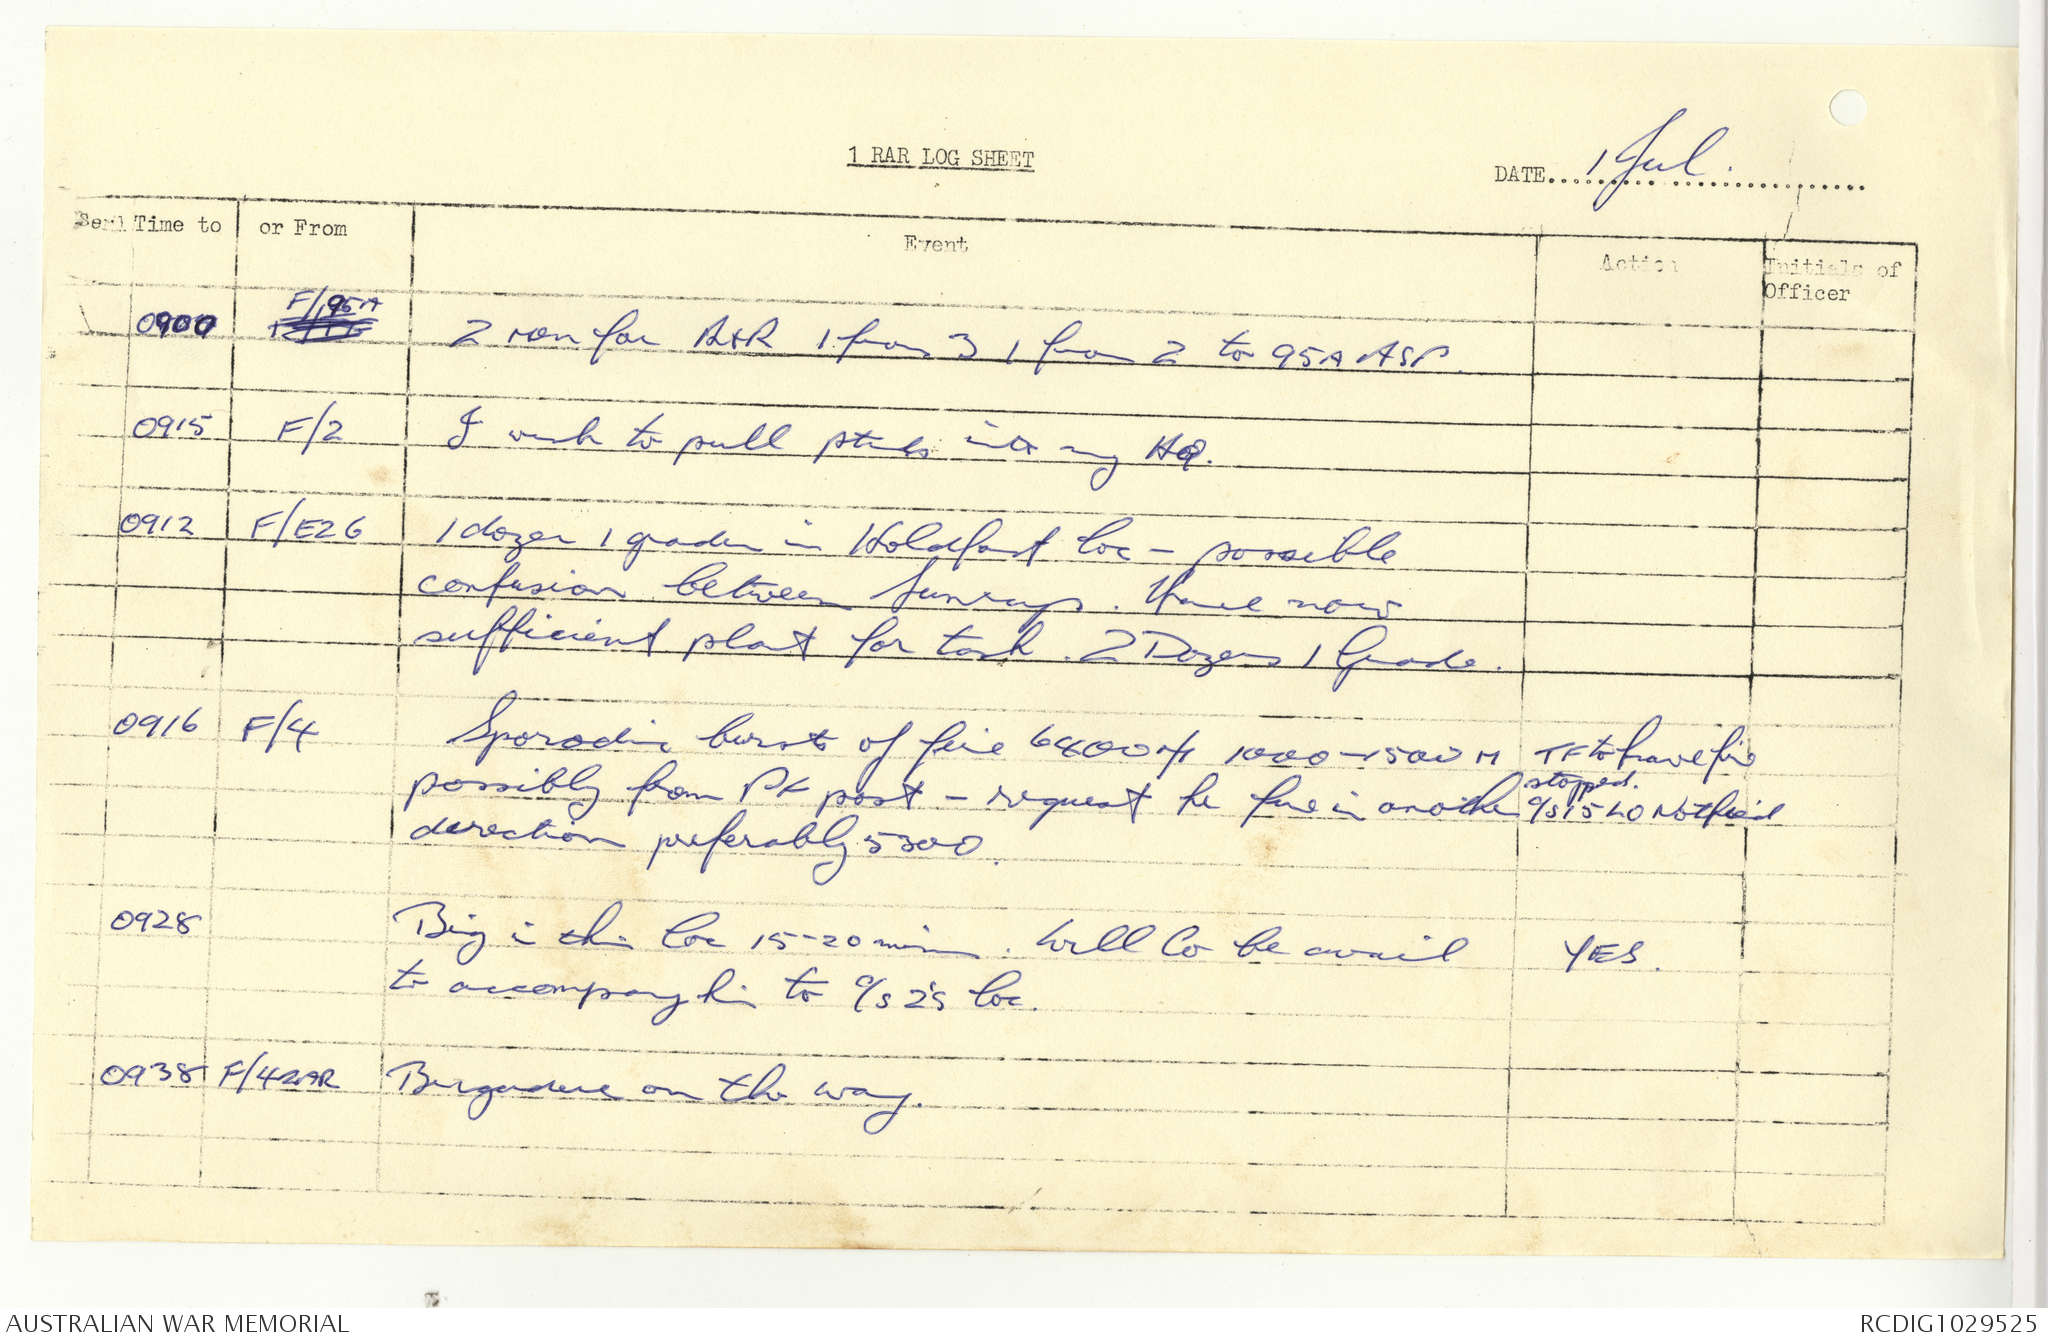 1 RAR LOG SHEET
DATE 1 Jul.
Serl Time to or From Event Action Initials of Officer
0900 F/95A 2 men for R&R 1 from 3 1 from 2 to 95A ASP.
0915 F/2 I wish to pull into my HQ.
0912 F/E26 1 dozer 1 grader in Holdfast loc - possible
confusion between Sunrays. Have now
sufficient plant for task. 2 Dozers 1 Grade.
0916 F/4 Sporadic bursts of fire 6400 1000-1500 M TF to have fire
possibly from PF post - request he fire in another stopped.
direction preferably 5300. Notified
0928 Brig in this loc 15-20 mins. Will Co be avail YES.
to accompany him to c/s 2's loc.
0938 F/42AR Brigadere on the way.
AUSTRALIAN WAR MEMORIAL RCDIG1029525